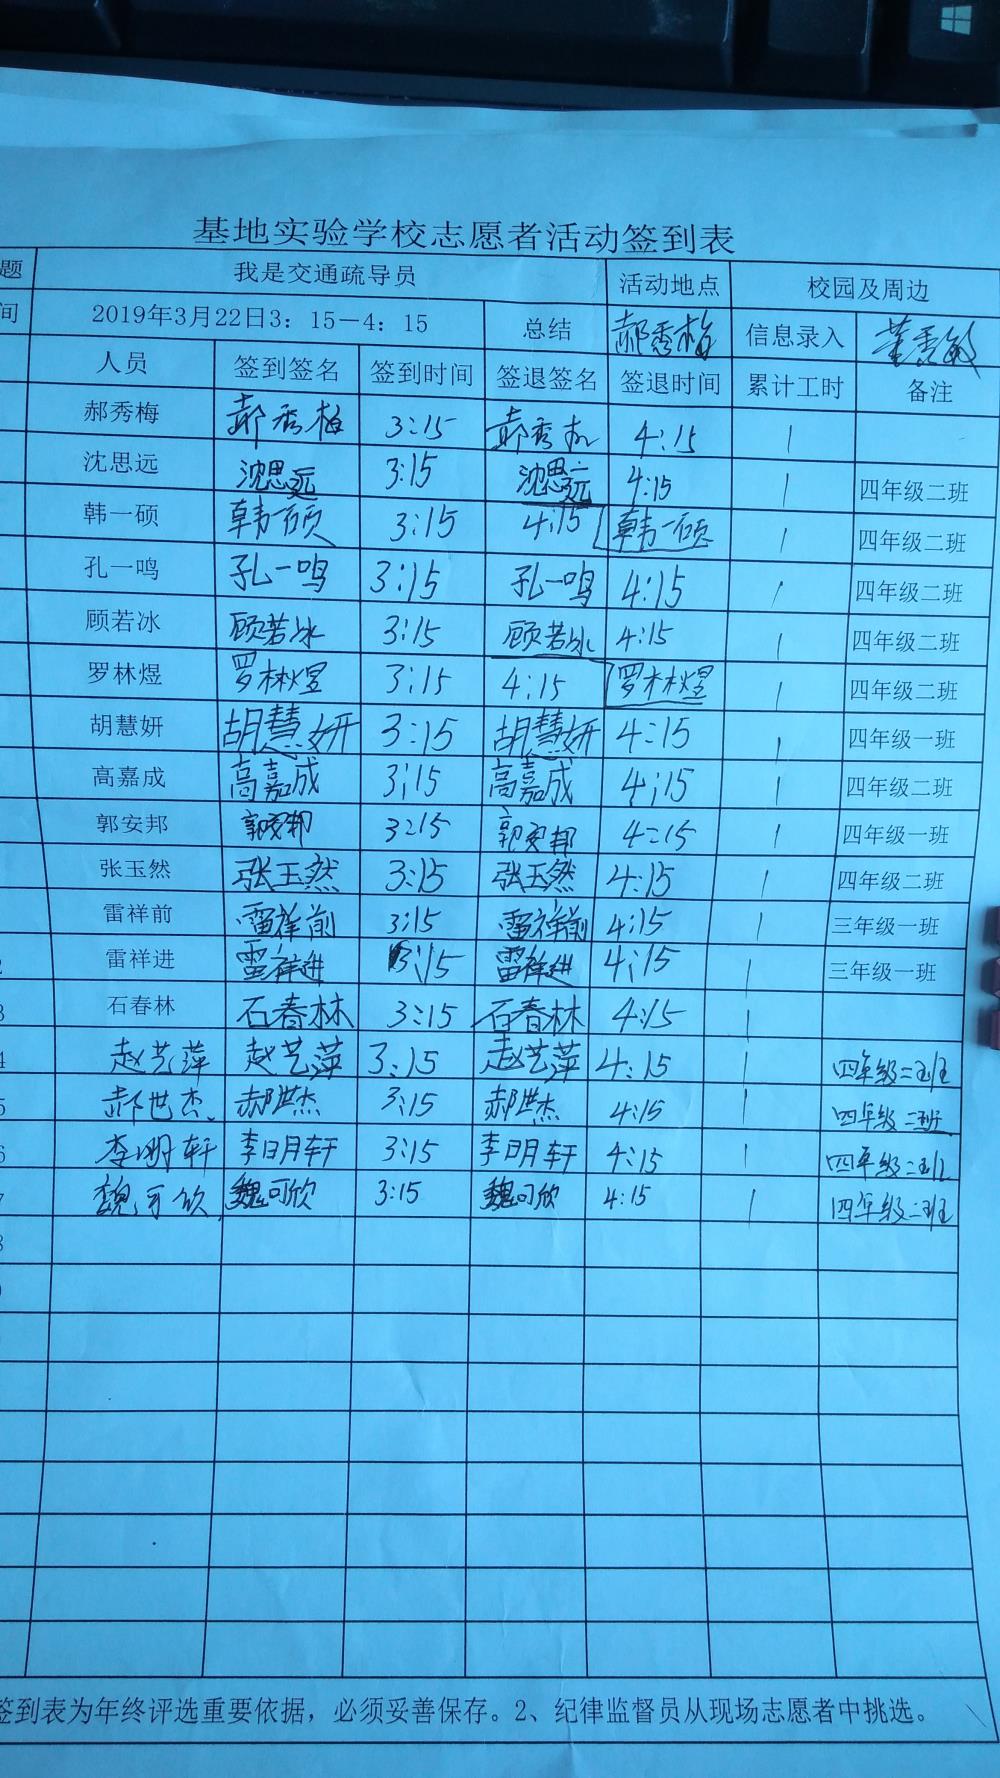 基地实验学校志愿者活动签到表
题 我是交通疏导员 活动地点 校园及周边
间 2019年3月22日3：15－4：15 总结 郝秀梅 信息录入 董秀敏
人员 签到签名 签到时间 签退签名 签退时间 累计工时 备注
郝秀梅 郝秀梅 3:15 郝秀梅 4:15 1
沈思远 沈思远 3:15 沈思远 4:15 1 四年级二班
韩一硕 韩一硕 3:15 4:15 韩一硕 1 四年级二班
孔一鸣 孔一鸣 3:15 孔一鸣 4:15 1 四年级二班
顾若冰 顾若冰 3:15 顾若冰 4:15 1 四年级二班
罗林煜 罗林煜 3:15 4:15 罗林煜 1 四年级二班
胡慧妍 胡慧妍 3:15 胡慧妍 4:15 1 四年级一班
高嘉成 高嘉成 3:15 高嘉成 4:15 1 四年级二班
郭安邦 郭安邦 3:15 郭安邦 4:15 1 四年级一班
张玉然 张玉然 3:15 张玉然 4:15 1 四年级二班
雷祥前 雷祥前 3:15 雷祥前 4:15 1 三年级一班
2 雷祥进 雷祥进 3:15 雷祥进 4:15 1 三年级一班
3 石春林 石春林 3:15 石春林 4:15 1
4 赵艺萍 赵艺萍 3:15 赵艺萍 4:15 1 四年级二班
5 郝世杰 郝世杰 3:15 郝世杰 4:15 1 四年级二班
6 李明轩 李明轩 3:15 李明轩 4:15 1 四年级二班
7 魏可欣 魏可欣 3:15 魏可欣 4:15 1 四年级二班
8
签到表为年终评选重要依据，必须妥善保存。2、纪律监督员从现场志愿者中挑选。